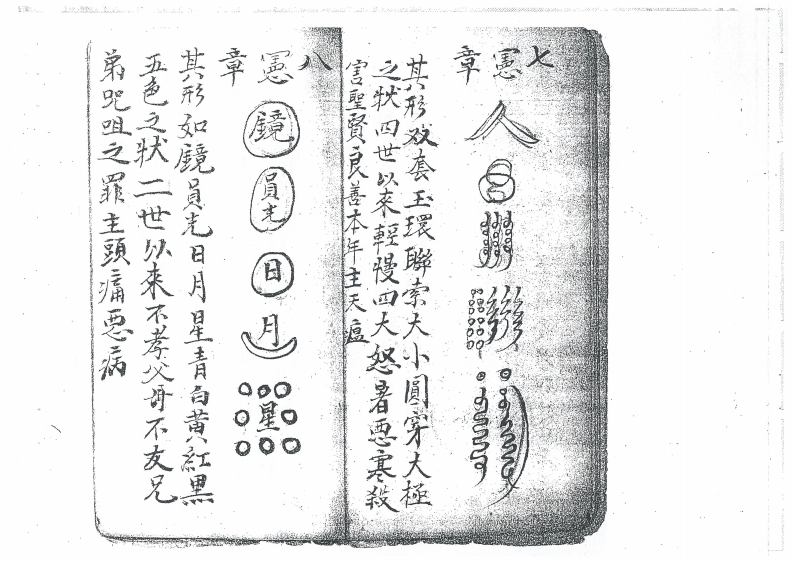 七
憲章
人
呂
其形双套玉環聯索大小圓穿大極
之狀四世以來輕慢四大怒暑惡寒殺
害聖賢良善本年主天瘟
八
憲章
鏡
員光
日
月
星
其形如鏡員光日月星青白黃紅黑
五色之狀二世以來不孝父母不友兄
弟咒咀之罪主頭痛惡病